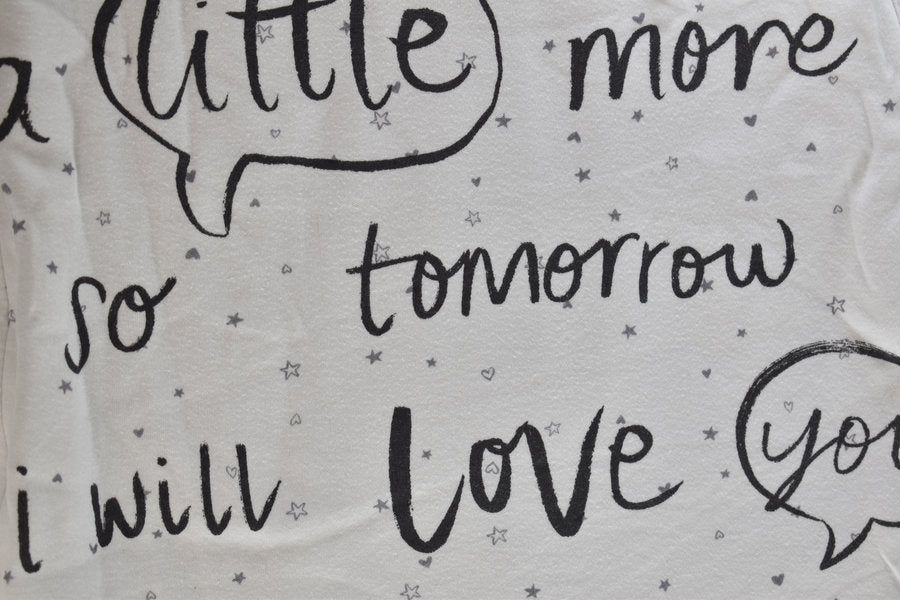 a little more
so tomorrow
i will love you